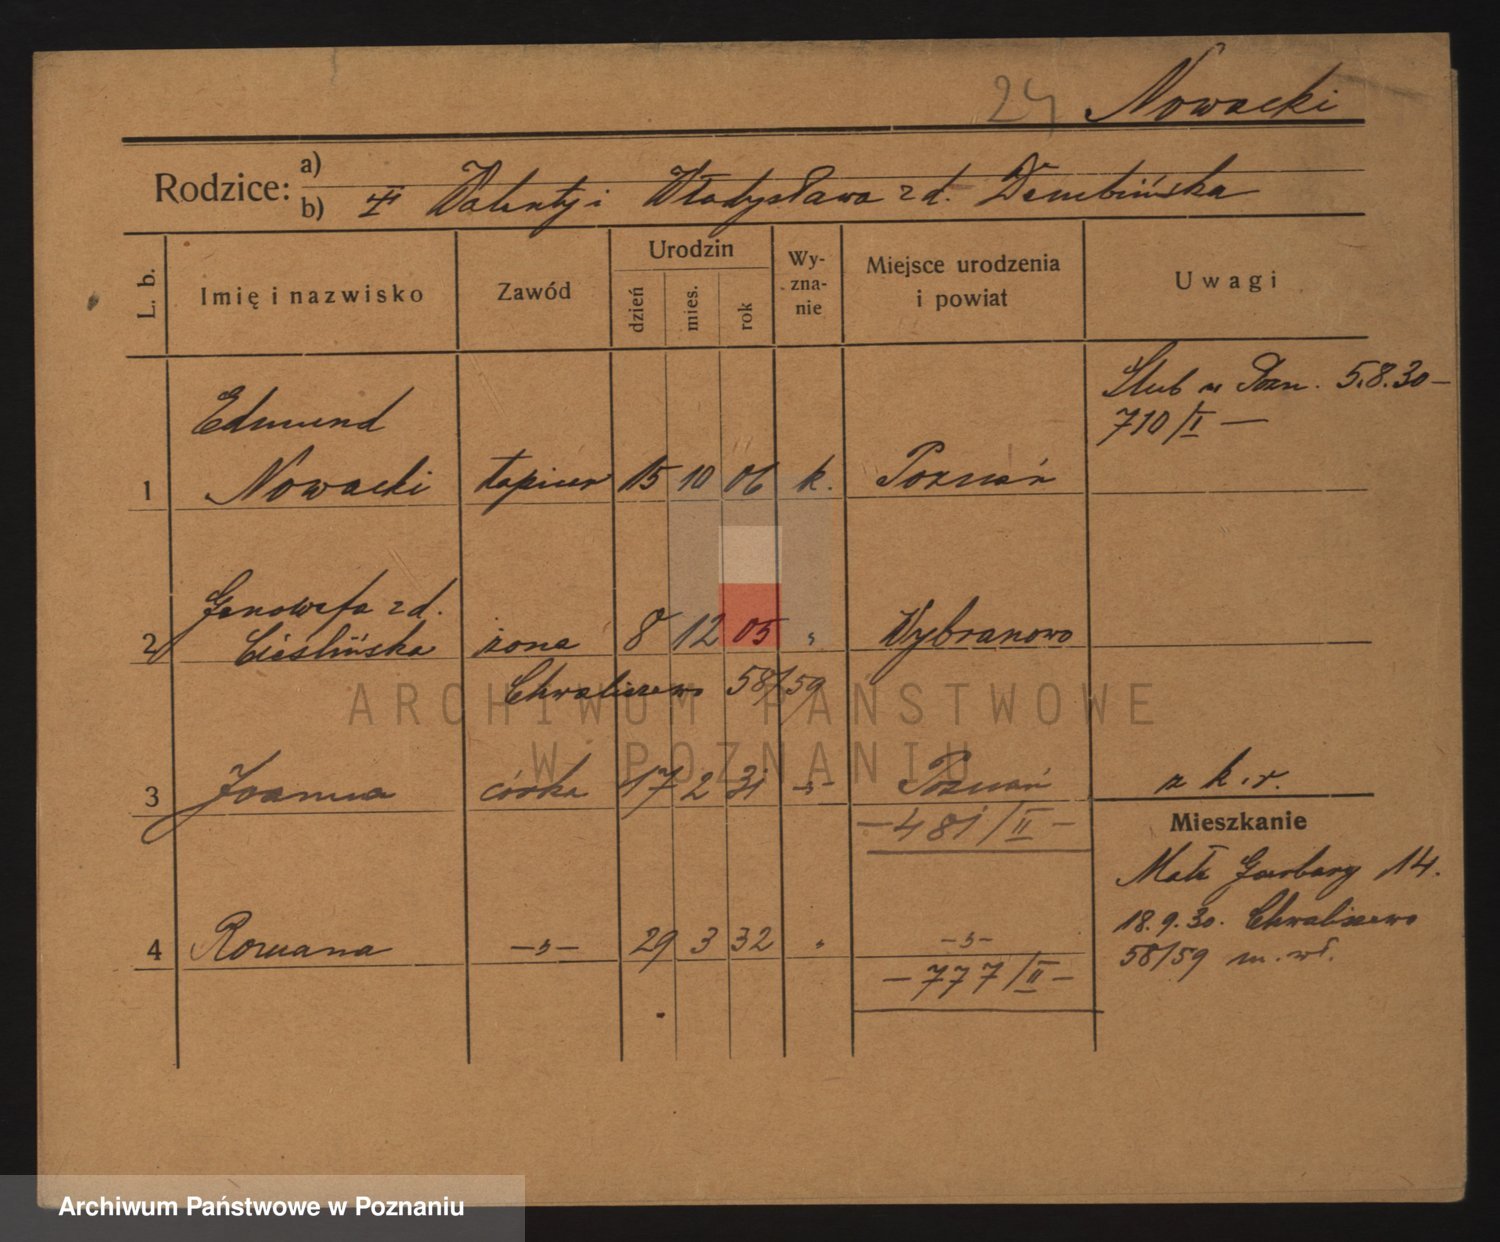 24 Nowacki
Rodzice: a)
b) Walenty i Władysława z d. Dembińska
L. b.
Imię i nazwisko
Zawód
Urodzin
dzień
mies.
rok
Wy-
zna-
nie
Miejsce urodzenia
i powiat
Uwagi
Ślub w Pozn. 5.8.30 —
710/I —
Edmund
1 Nowacki tapicer 15 10 06 k. Poznań
Genowefa z d.
2 Cieślińska żona 8 12 05 " Wybranowo
Chwaliszewo 58/59
3 Joanna córka 17 2 31 -"- Poznań z k. r.
— 481/II —
Mieszkanie
Małe Garbary 14.
18.9.30. Chwaliszewo
58/59 m. wł.
4 Romana —"— 29 3 32 " -"-
— 777/II —
ARCHIWUM PAŃSTWOWE
W POZNANIU
Archiwum Państwowe w Poznaniu